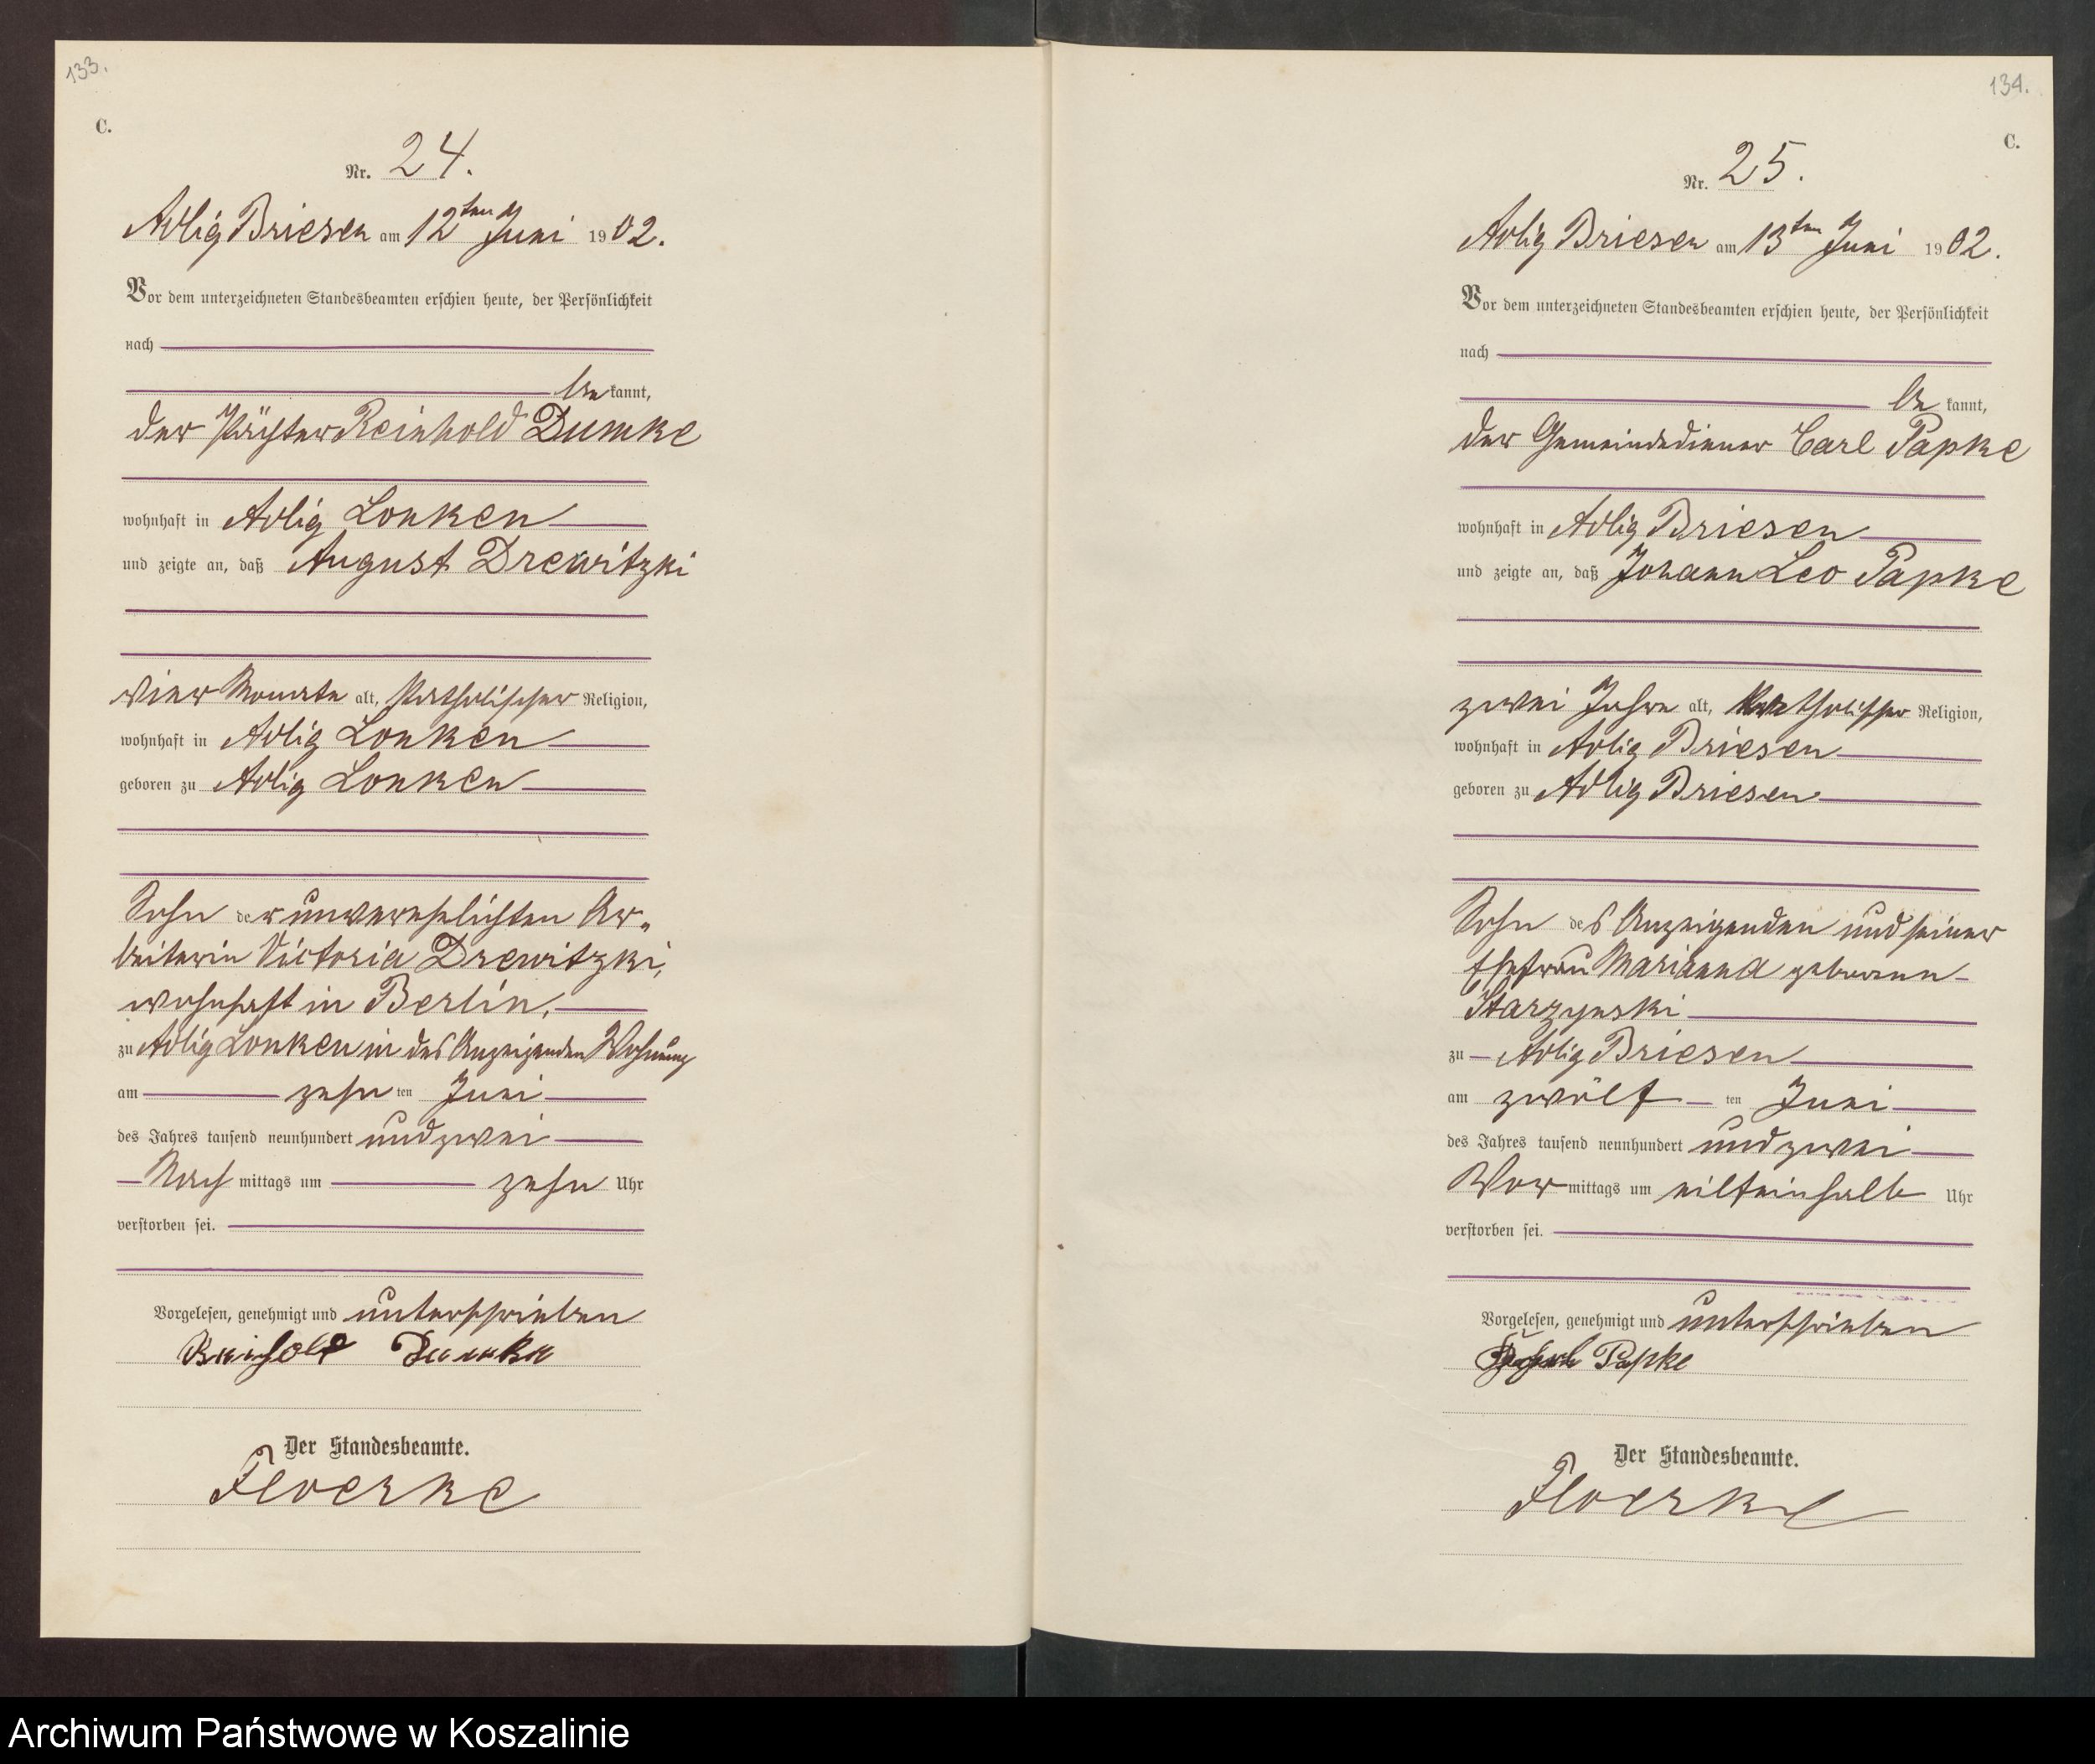 133.
C.
Nr. 24.
Adlig Briesen am 12ten Juni 1902.
Vor dem unterzeichneten Standesbeamten erschien heute, der Persönlichkeit
nach
be kannt,
der Pächter Reinhold Dumke
wohnhaft in Adlig Lonken
und zeigte an, daß August Drewitzki
vier Monate alt, katholischer Religion,
wohnhaft in Adlig Lonken
geboren zu Adlig Lonken
Sohn der unverehelichten Ar-
beiterin Victoria Drewitzki,
wohnhaft in Berlin,
zu Adlig Lonken in des Anzeigenden Wohnung
am zehn ten Juni
des Jahres tausend neunhundert und zwei
Nach mittags um zehn Uhr
verstorben sei.
Vorgelesen, genehmigt und unterschrieben
Reinhold Dumke
Der Standesbeamte.
Floerke
134.
C.
Nr. 25.
Adlig Briesen am 13ten Juni 1902.
Vor dem unterzeichneten Standesbeamten erschien heute, der Persönlichkeit
nach
be kannt,
der Gemeindediener Carl Papke
wohnhaft in Adlig Briesen
und zeigte an, daß Johann Leo Papke
zwei Jahre alt, katholischer Religion,
wohnhaft in Adlig Briesen
geboren zu Adlig Briesen
Sohn des Anzeigenden und seiner
Ehefrau Marianna geborenen
Starzynski
zu Adlig Briesen
am zwölf ten Juni
des Jahres tausend neunhundert und zwei
Vor mittags um eilfeinhalb Uhr
verstorben sei.
Vorgelesen, genehmigt und unterschrieben
Papke
Der Standesbeamte.
Floerke
Archiwum Państwowe w Koszalinie